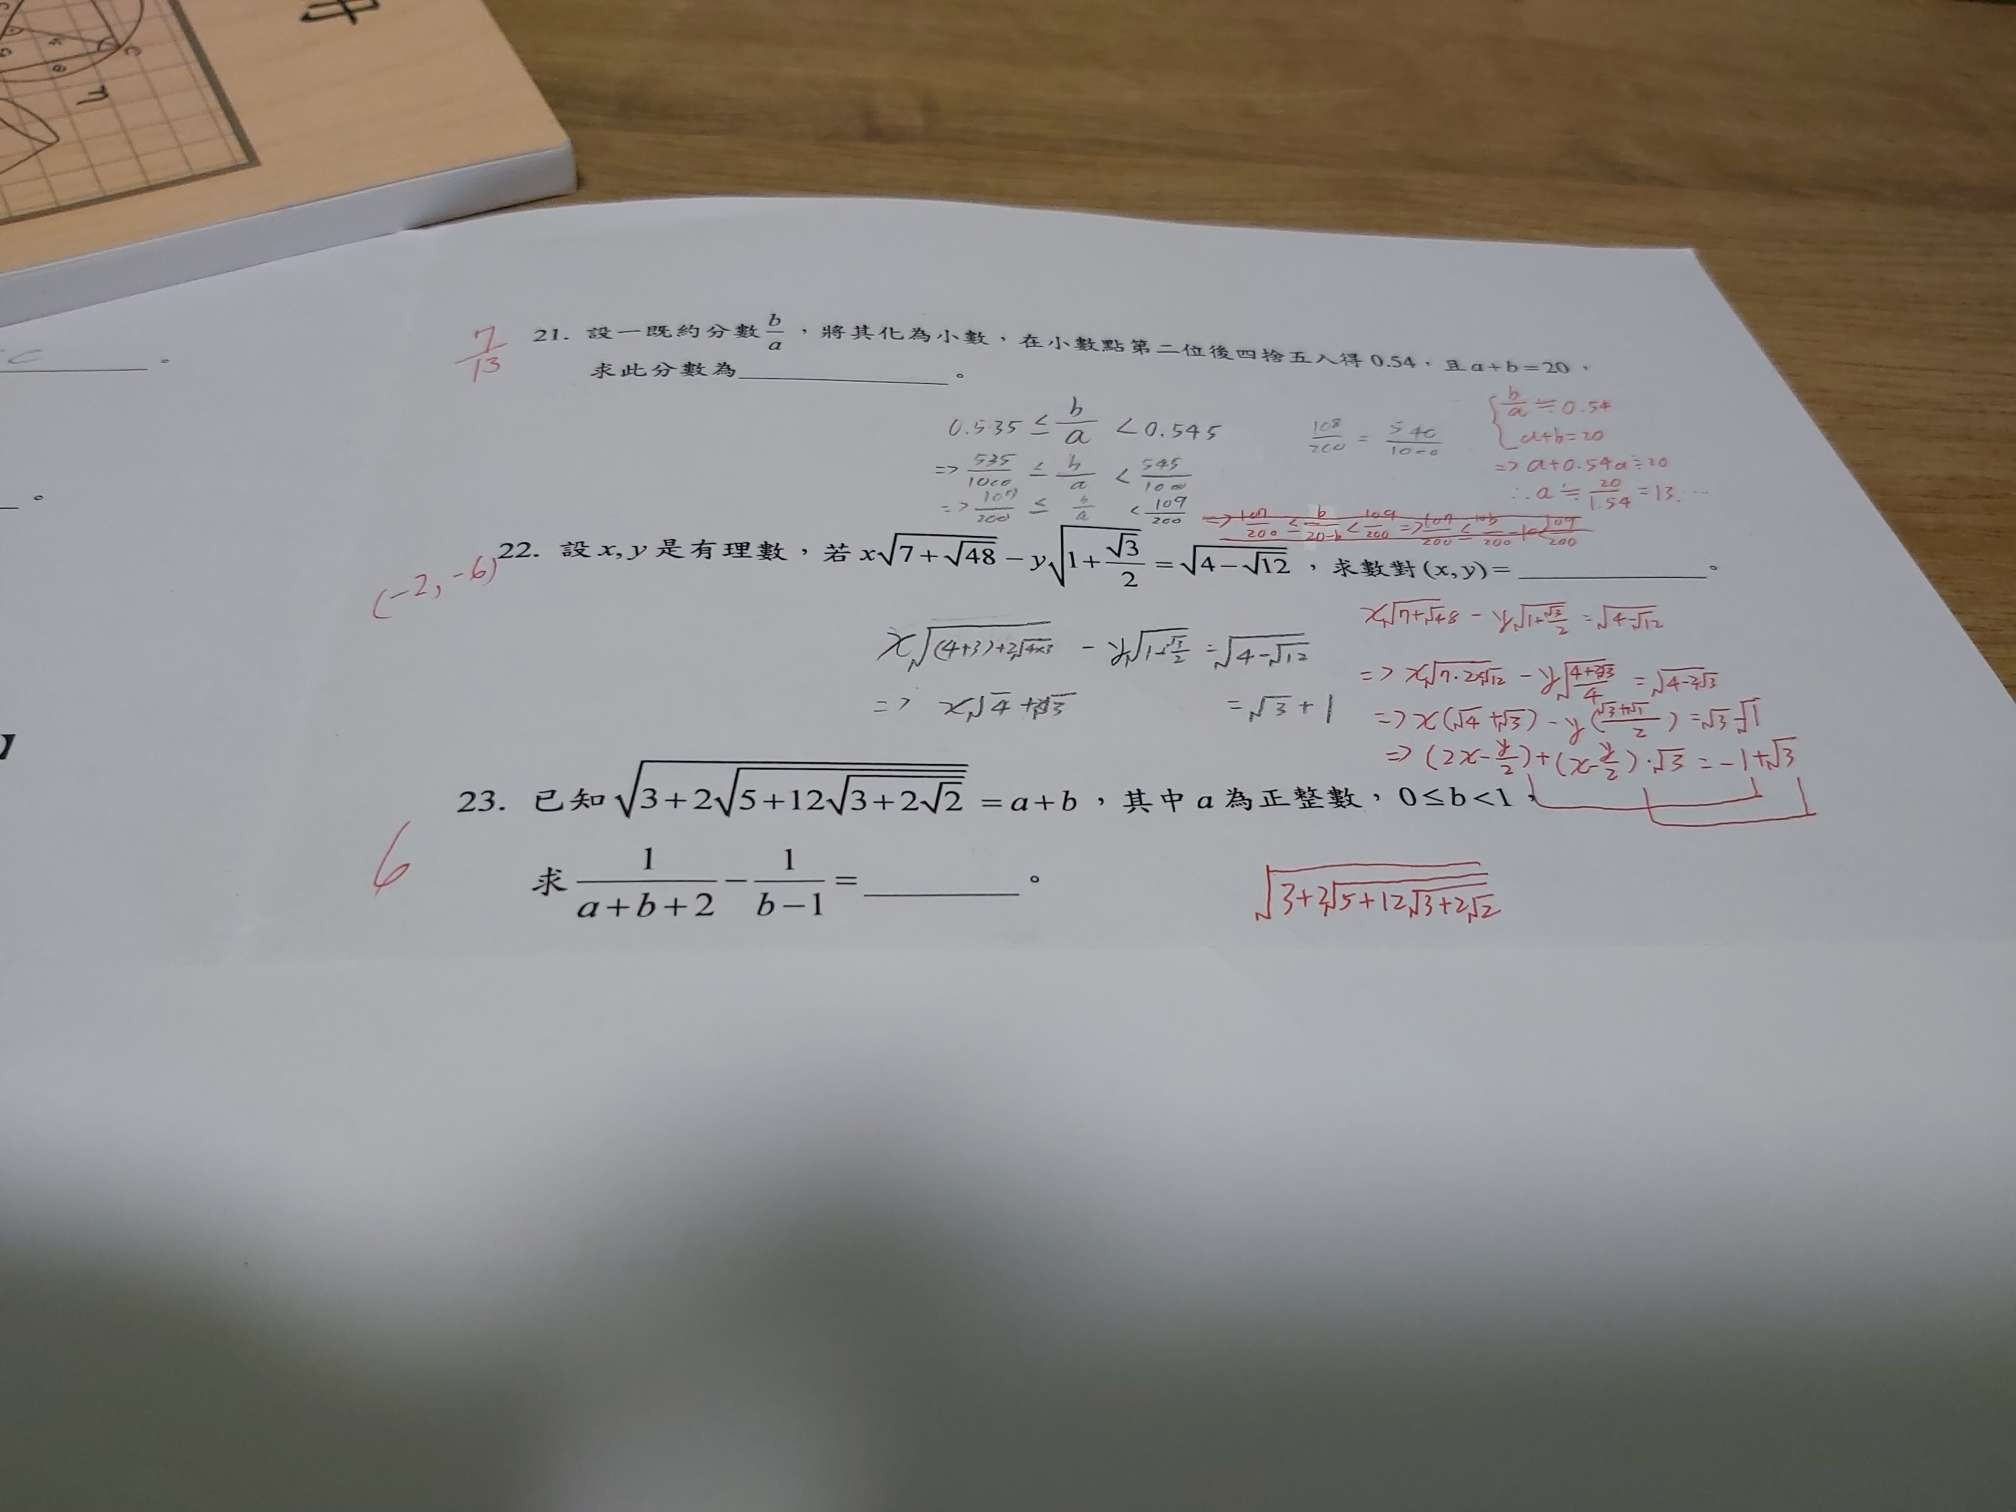 7/13
21. 設一既約分數 b/a，將其化為小數，在小數點第二位後四捨五入得 0.54，且 a+b=20，
求此分數為__________。
0.535 ≤ b/a < 0.545
=> 535/1000 ≤ b/a < 545/1000
=> 107/200 ≤ b/a < 109/200
108/200 = 540/1000
{ b/a ≒ 0.54
a+b=20
=> a+0.54a ≒ 20
∴ a ≒ 20/1.54 = 13. ...
(-2, -6)
22. 設 x, y 是有理數，若 x√(7+√48) − y√(1+√3/2) = √(4−√12)，求數對 (x, y) = __________。
x√((4+3)+2√4×3) − y√(1+√3/2) = √(4−√12)
=> x√4+√3 = √3+1
x√7+√48 − y√(1+√3/2) = √4−√12
=> x√7·2√12 − y√((4+2√3)/4) = √4−2√3
=> x(√4+√3) − y((√3+√1)/2) = √3−√1
=> (2x−y/2)+(x−y/2)·√3 = −1+√3
6
23. 已知 √(3+2√(5+12√(3+2√2))) = a+b，其中 a 為正整數，0≤b<1，
求 1/(a+b+2) − 1/(b−1) = __________。
√(3+2√(5+12√(3+2√2)))